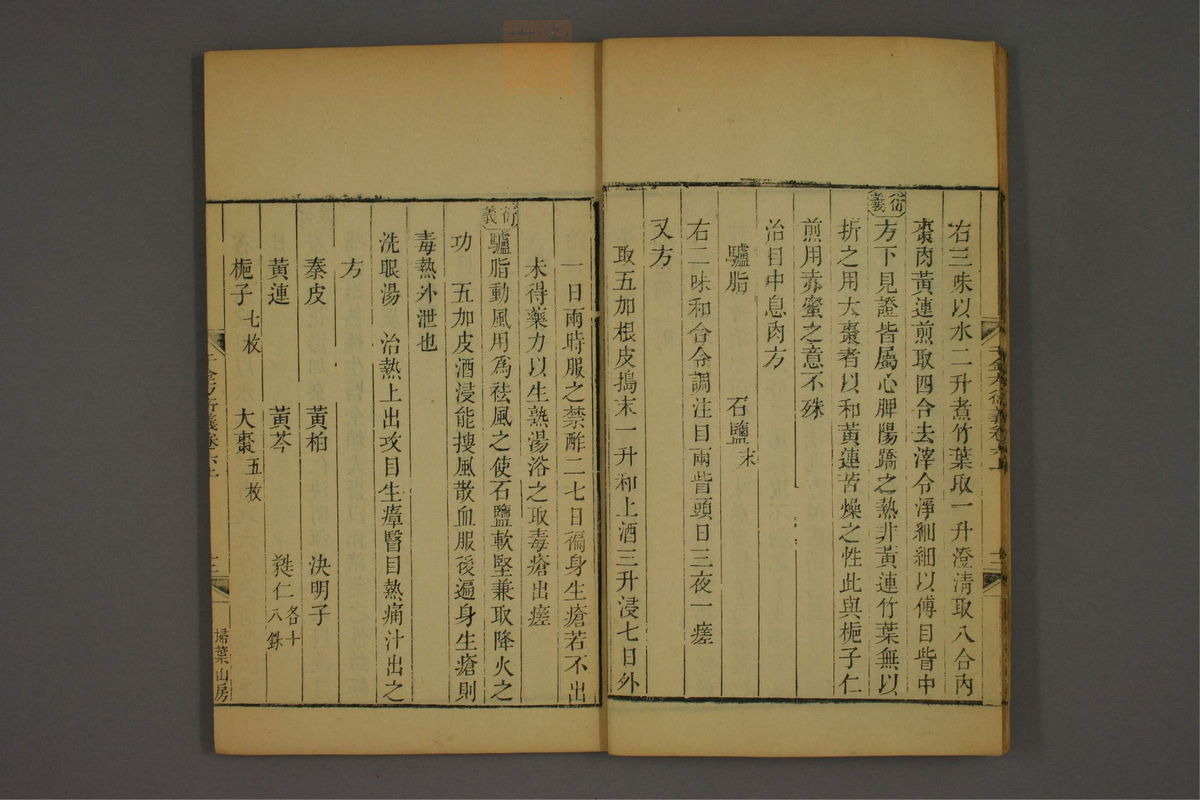 右三味以水二升煮竹葉取一升澄清取八合內
棗肉黃連煎取四合去滓令淨細細以傅目眥中
衍義
方下見證皆屬心脾陽蹻之熱非黃連竹葉無以
折之用大棗者以和黃連苦燥之性此與梔子仁
煎用赤蜜之意不殊
治目中息肉方
驢脂 石鹽末
右二味和合令調注目兩眥頭日三夜一瘥
又方
取五加根皮搗末一升和上酒三升浸七日外
一日兩時服之禁酢二七日徧身生瘡若不出
未得藥力以生熟湯浴之取毒瘡出瘥
衍義
驢脂動風用為祛風之使石鹽軟堅兼取降火之
功 五加皮酒浸能搜風散血服後遍身生瘡則
毒熱外泄也
洗眼湯 治熱上出攻目生瘴瞖目熱痛汁出之
方
秦皮 黃柏 決明子
黃連 黃芩 蕤仁各十八銖
梔子七枚 大棗五枚
千金方衍義卷六上
十三
掃葉山房